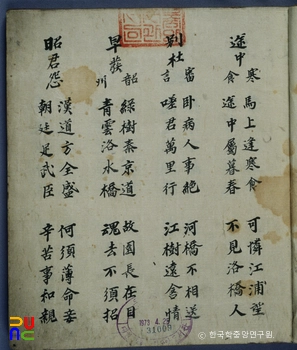 途中寒食
馬上逢寒食 可憐江浦望
途中屬暮春 不見洛橋人
別杜審言
臥病人事絶 河橋不相送
嗟君萬里行 江樹遠含情
早發韶州
綠樹秦京道 故園長在目
青雲洛水橋 魂去不須招
昭君怨
漢道方全盛 何須薄命妾
朝廷足武臣 辛苦事和親
31009
한국학중앙연구원